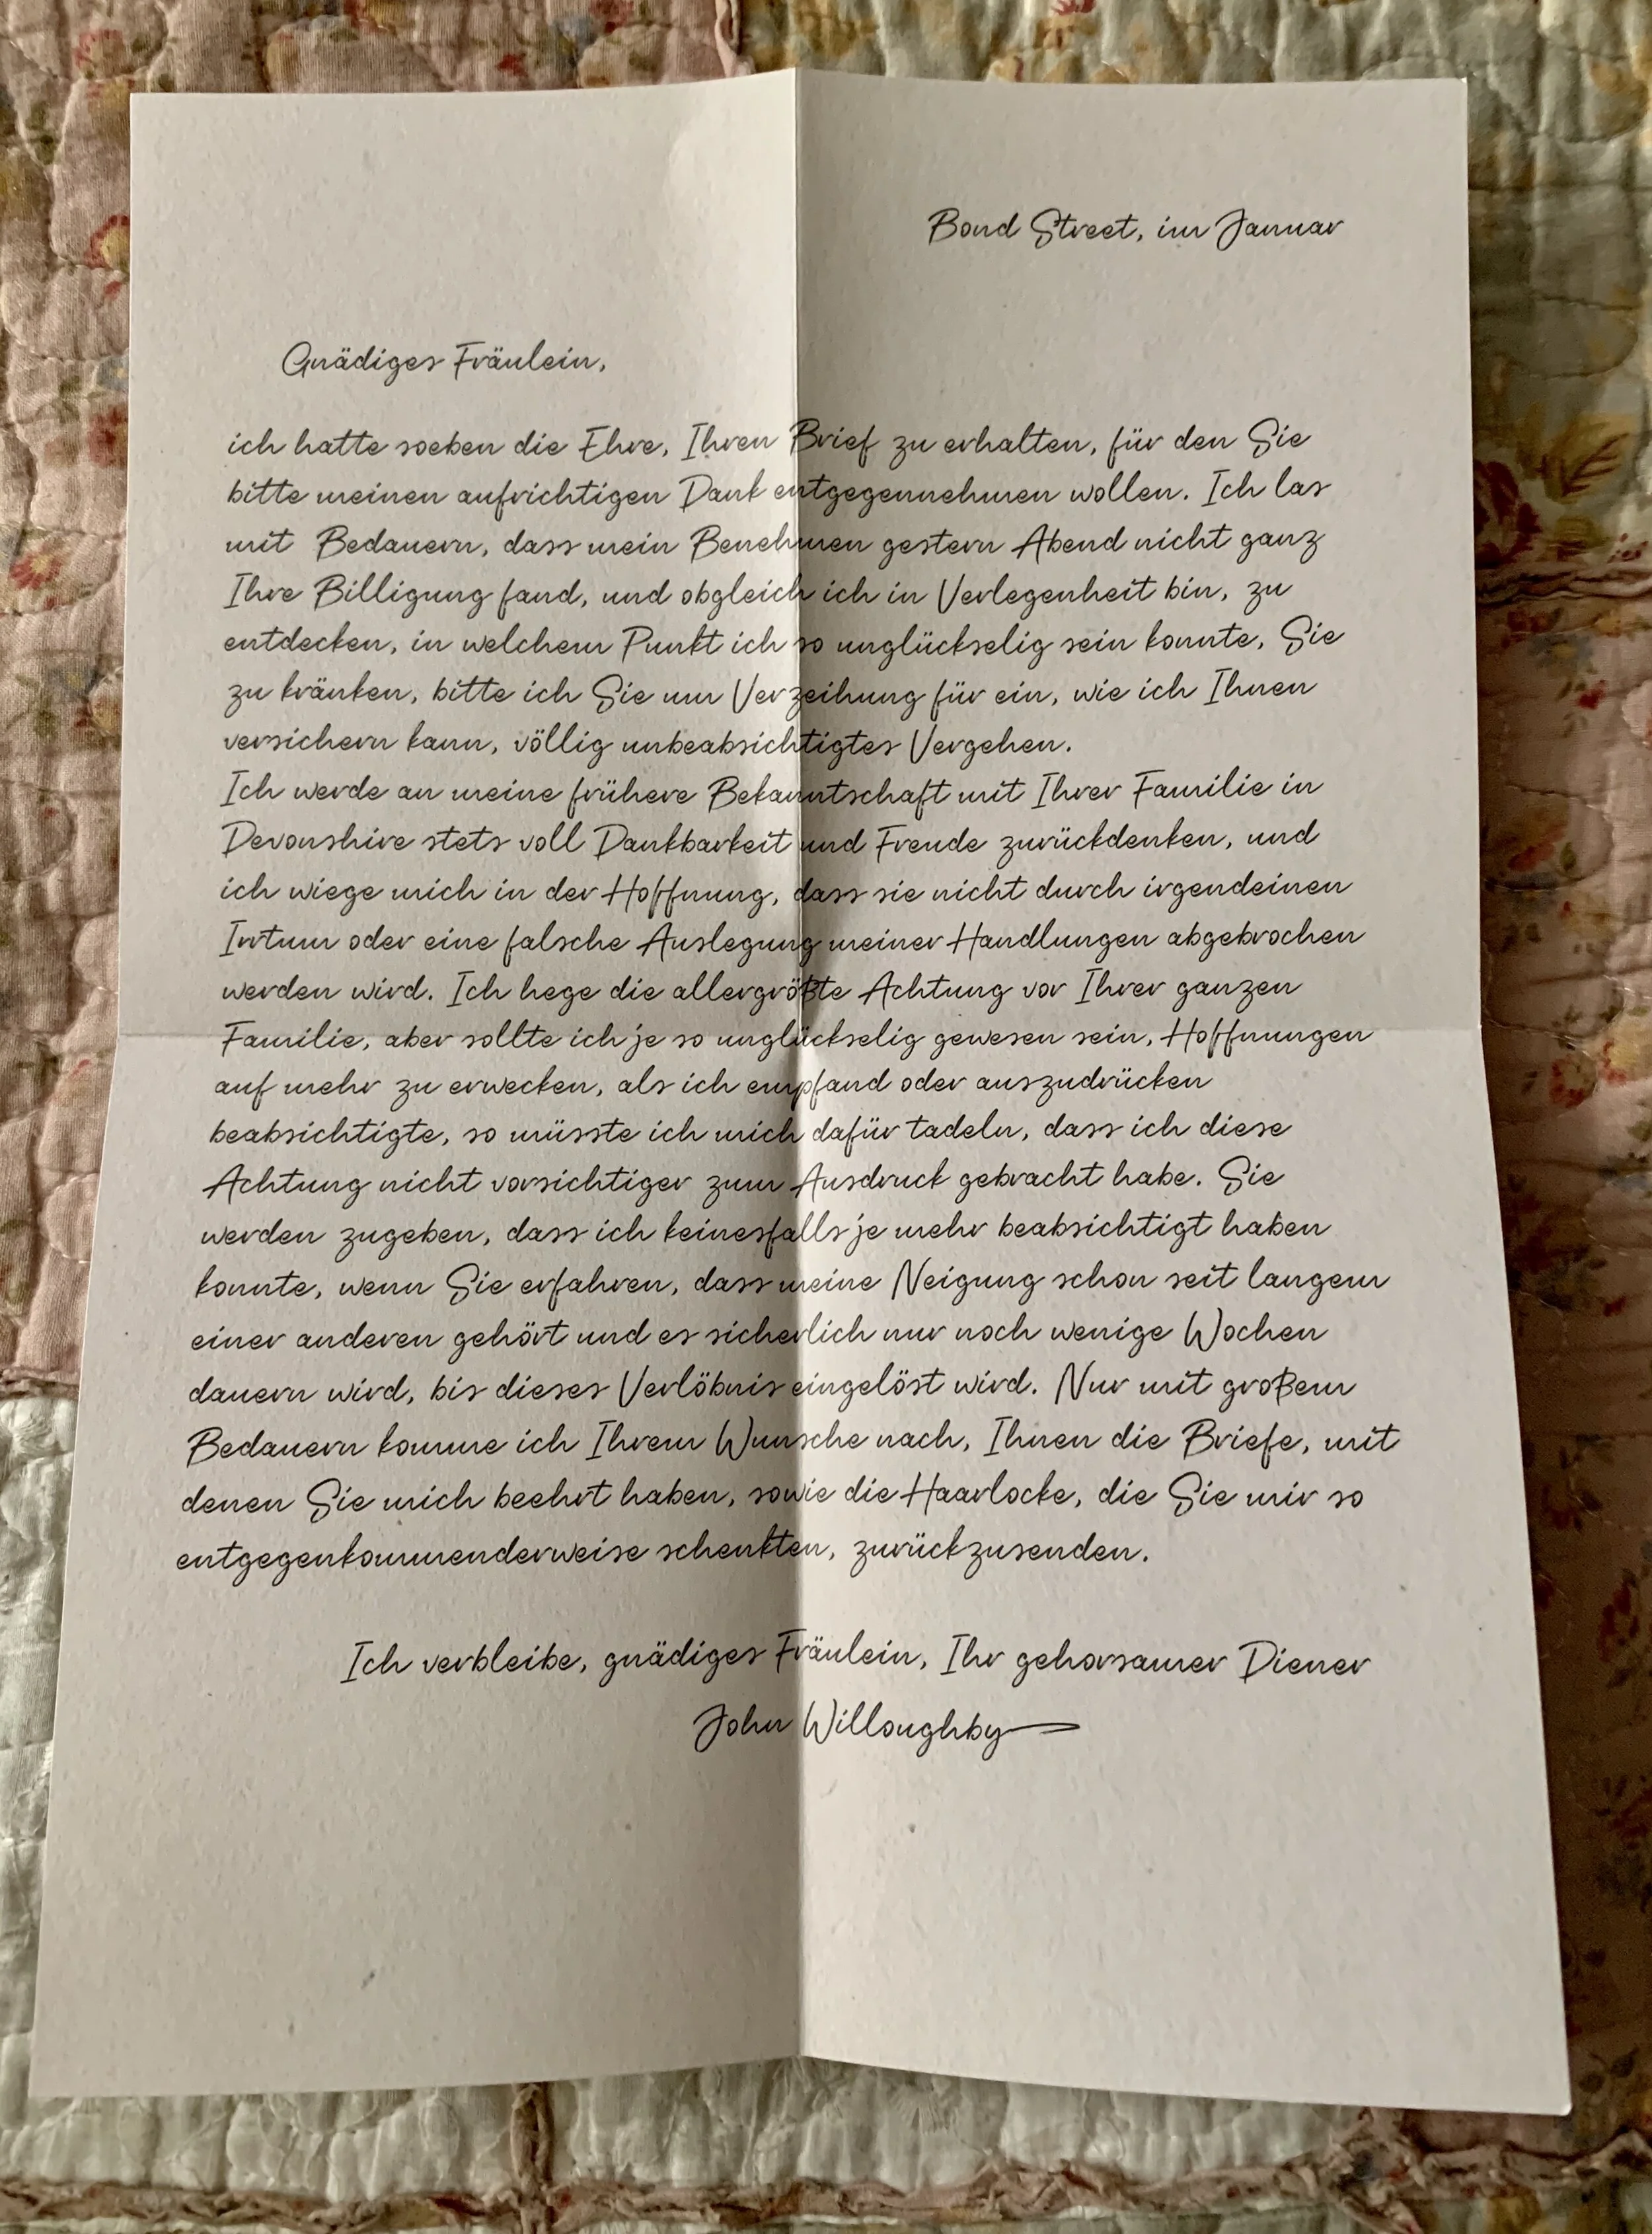 Bond Street, im Januar
Gnädiges Fräulein,
ich hatte soeben die Ehre, Ihren Brief zu erhalten, für den Sie
bitte meinen aufrichtigen Dank entgegennehmen wollen. Ich las
mit Bedauern, dass mein Benehmen gestern Abend nicht ganz
Ihre Billigung fand, und obgleich ich in Verlegenheit bin, zu
entdecken, in welchem Punkt ich so unglückselig sein konnte, Sie
zu kränken, bitte ich Sie um Verzeihung für ein, wie ich Ihnen
versichern kann, völlig unbeabsichtigtes Vergehen.
Ich werde an meine frühere Bekanntschaft mit Ihrer Familie in
Devonshire stets voll Dankbarkeit und Freude zurückdenken, und
ich wiege mich in der Hoffnung, dass sie nicht durch irgendeinen
Irrtum oder eine falsche Auslegung meiner Handlungen abgebrochen
werden wird. Ich hege die allergrößte Achtung vor Ihrer ganzen
Familie, aber sollte ich je so unglückselig gewesen sein, Hoffnungen
auf mehr zu erwecken, als ich empfand oder auszudrücken
beabsichtigte, so müsste ich mich dafür tadeln, dass ich diese
Achtung nicht vorsichtiger zum Ausdruck gebracht habe. Sie
werden zugeben, dass ich keinesfalls je mehr beabsichtigt haben
konnte, wenn Sie erfahren, dass meine Neigung schon seit langem
einer anderen gehört und es sicherlich nur noch wenige Wochen
dauern wird, bis dieses Verlöbnis eingelöst wird. Nur mit großem
Bedauern komme ich Ihrem Wunsche nach, Ihnen die Briefe, mit
denen Sie mich beehrt haben, sowie die Haarlocke, die Sie mir so
entgegenkommenderweise schenkten, zurückzusenden.
Ich verbleibe, gnädiges Fräulein, Ihr gehorsamer Diener
John Willoughby